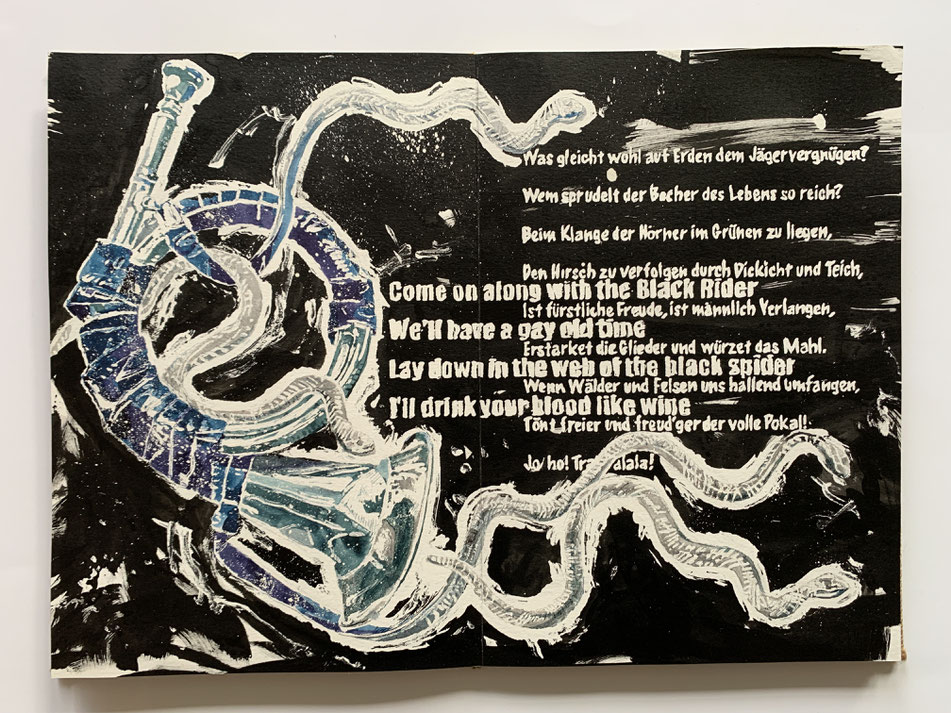 Was gleicht wohl auf Erden dem Jägervergnügen?
Wem sprudelt der Becher des Lebens so reich?
Beim Klange der Hörner im Grünen zu liegen,
Den Hirsch zu verfolgen durch Dickicht und Teich,
Come on along with the Black Rider
Ist fürstliche Freude, ist männlich Verlangen,
We'll have a gay old time
Erstarket die Glieder und würzet das Mahl.
Lay down in the web of the black spider
Wenn Wälder und Felsen uns hallend umfangen,
I'll drink your blood like wine
Tönt freier und freud'ger der volle Pokal!
Jo ho!